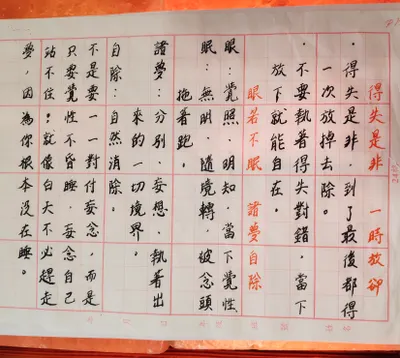 得失是非 一時放卻
·得失是非,到了最後都得
一次放掉去除。
·不要執著得失對錯,當下
放下就能自在。
眼若不眠 諸夢自除
眼:覺照、明知,當下覺性
眠:無明、隨境轉,被念頭
拖著跑。
諸夢:分別、妄想、執著出
來的一切境界。
自除:自然消除。
不是要一一對付妄念,而是
只要覺性不昏睡,妄念自己
站不住。就像白天不必趕走
夢,因為你根本沒在睡。